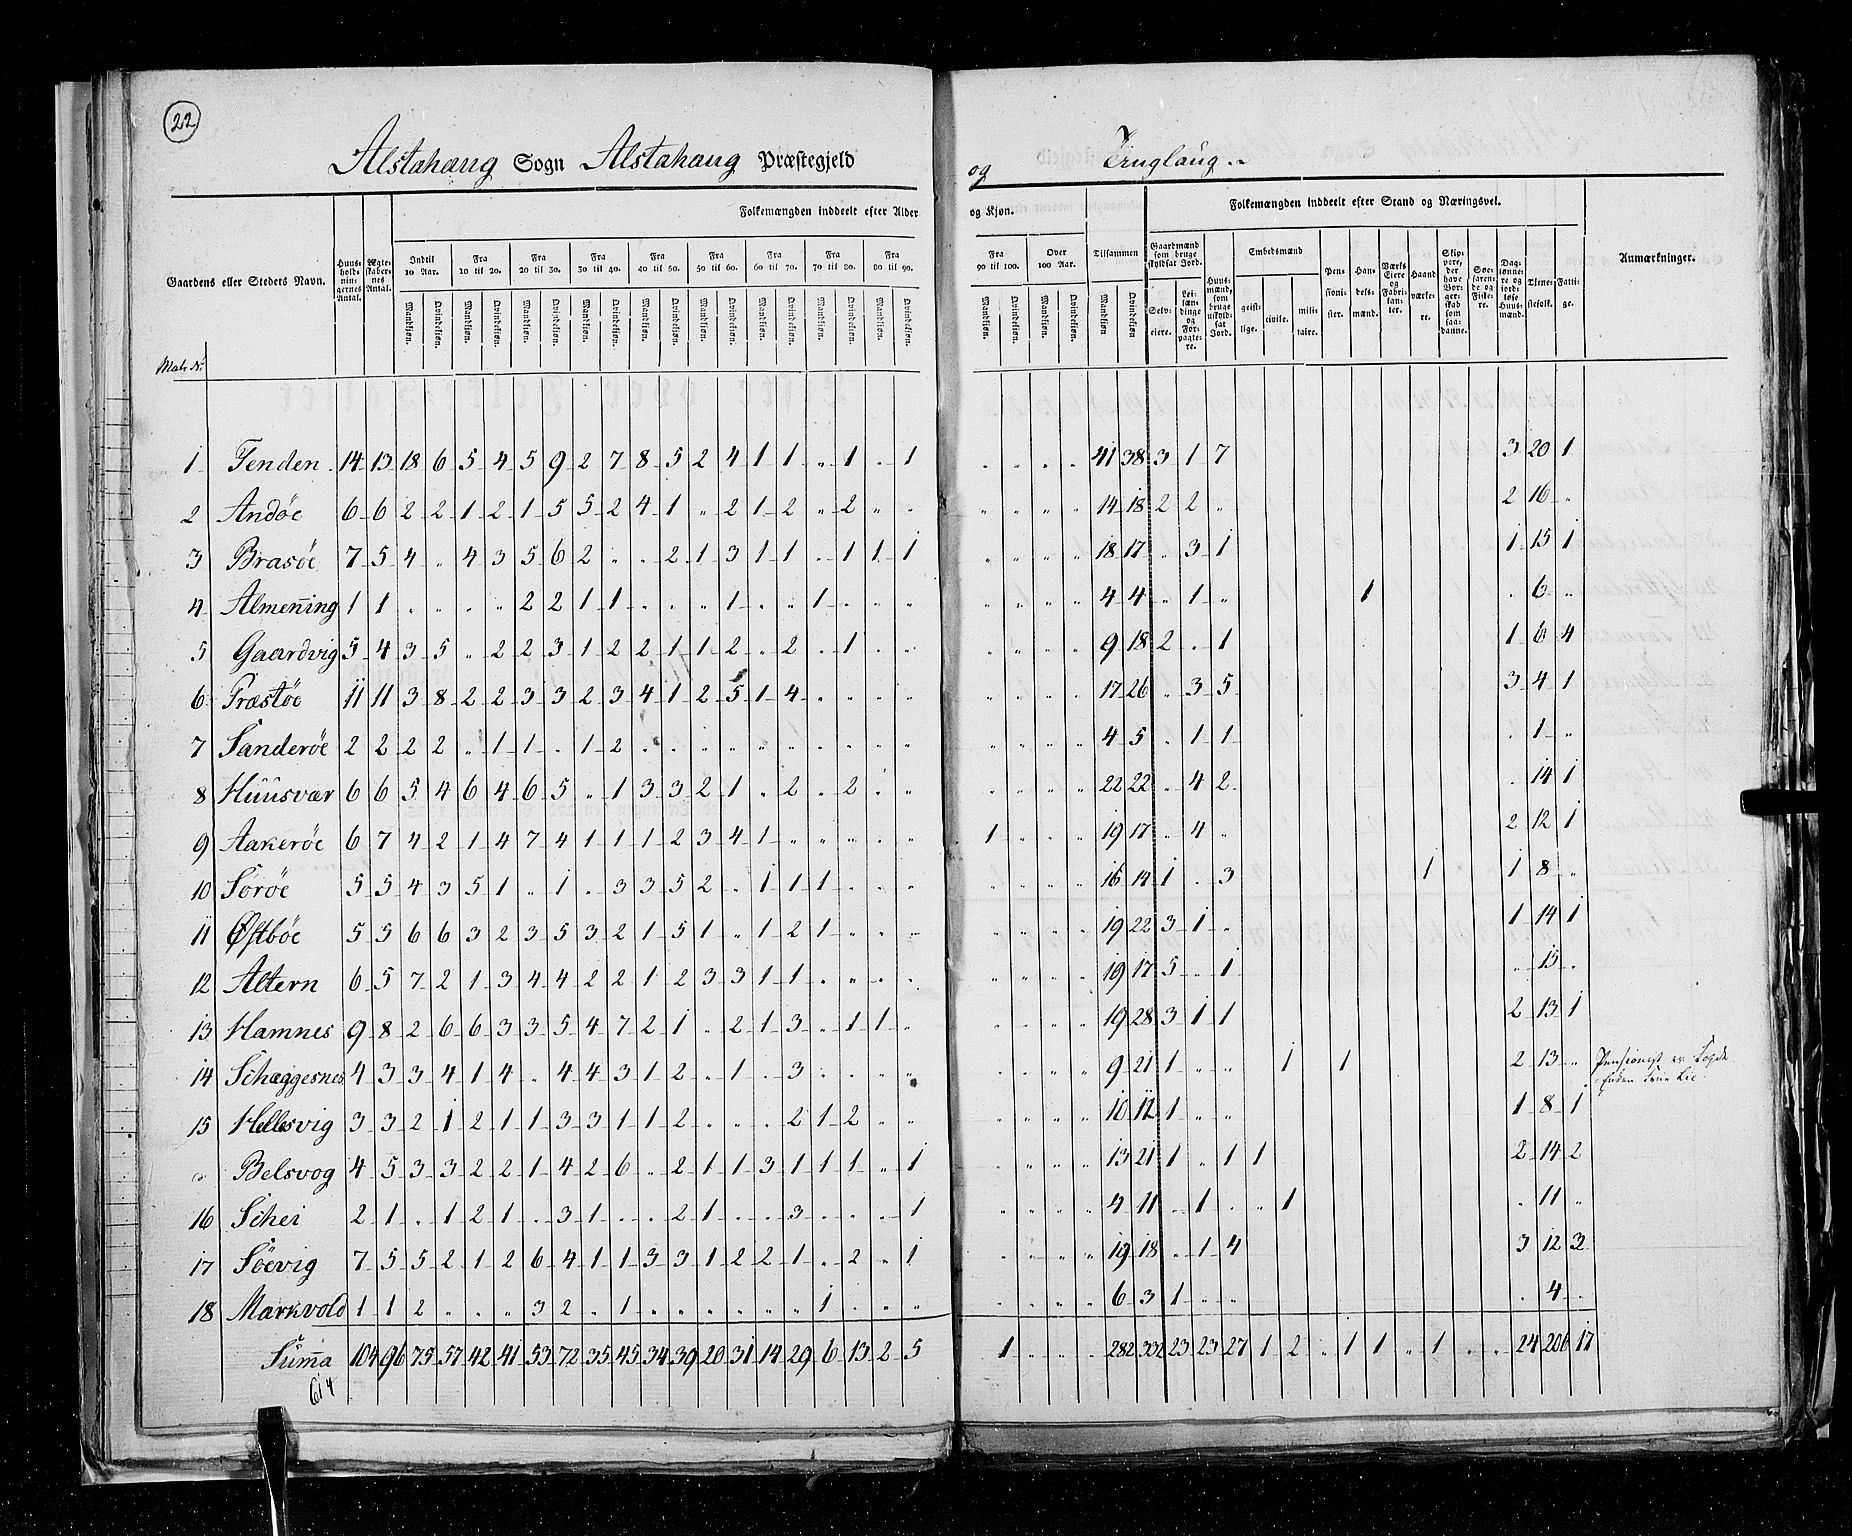 22
Alstahaug Sogn Alstahaug Præstegjeld og Tinglaug
Folkemængden inddeelt efter Alder og Kjøn.
Folkemængden inddeelt efter Stand og Næringsvei.
Gaardens eller Stedets Navn. Huusholdningernes Antal. Ægteskabernes Antal. Indtil 10 Aar. Fra 10 til 20. Fra 20 til 30. Fra 30 til 40. Fra 40 til 50. Fra 50 til 60. Fra 60 til 70. Fra 70 til 80. Fra 80 til 90. Fra 90 til 100. Over 100 Aar. Tilsammen Gaardmænd som bruge skyldsat Jord. Huusmænd, som bruge uskyldsat Jord. Embedsmænd Pensionister. Handelsmænd. Værks Eiere og Fabrikanter. Haandværkere. Skippere, der have Borgerskab som saadanne. Søefarende og Fiskere. Daglønnere og jordløse Huusmænd. Tjenestefolk. Fattige. Anmærkninger.
Mandkjøn. Qvindekjøn. Mandkjøn. Qvindekjøn. Mandkjøn. Qvindekjøn. Mandkjøn. Qvindekjøn. Mandkjøn. Qvindekjøn. Mandkjøn. Qvindekjøn. Mandkjøn. Qvindekjøn. Mandkjøn. Qvindekjøn. Mandkjøn. Qvindekjøn. Mandkjøn. Qvindekjøn. Mandkjøn. Qvindekjøn. Mandkjøn Qvindekjøn Selveiere. Leilændinge og Forpagtere. geistlige. civile. militaire.
Matr. Nr.
1 Tenden 14 13 18 6 5 4 5 9 2 7 8 5 2 4 1 1 " 1 " 1 " " " " 41 38 3 1 7 3 20 1
2 Andöe 6 6 2 2 1 2 1 5 5 2 4 1 " 2 1 2 " 2 " " " " " " 14 18 2 2 " 2 16 "
3 Brasöe 7 5 4 " 4 3 5 6 2 " " 2 1 3 1 1 " 1 1 1 " " " " 18 17 " 3 1 1 15 1
4 Almening 1 1 " " " " 2 2 1 1 " " " 1 " " 1 " " " " " " " 4 4 " 1 " 1 " 6 "
5 Gaardvig 5 4 3 5 " 2 2 3 1 2 2 1 1 2 " 2 " 1 " " " " " " 9 18 2 " 1 1 6 4
6 Træstöe 11 11 3 8 2 2 3 3 2 3 4 1 2 5 1 4 " " " " " " " " 17 26 " 3 5 3 4 1
7 Sanderöe 2 2 2 2 " 1 1 " 1 2 " " " " " " " " " " " " " " 4 5 " 1 1 " 1 "
8 Huusvær 6 6 5 4 6 4 6 5 " 1 3 3 2 1 " 2 " 2 " " " " " " 22 22 " 4 2 " 14 1
9 Aakeröe 6 7 4 2 1 4 7 4 1 1 1 2 3 4 1 " " " " " 1 " " " 19 17 " 4 " 2 12 1
10 Söröe 5 5 4 3 5 1 " 1 " 3 3 5 2 " 1 1 1 " " " " " " " 16 14 1 " 3 1 1 8 "
11 Østböe 5 5 6 6 3 2 3 5 3 2 1 5 1 " 1 2 1 " " " " " " " 19 22 3 1 " 1 14 1
12 Altern 6 5 7 2 1 3 4 4 2 2 1 2 3 3 1 1 " " " " " " " " 19 17 5 " 1 " 15 "
13 Hamnes 9 8 2 6 6 3 3 5 4 7 2 1 " 2 1 3 " 1 1 " " " " " 19 28 3 1 1 2 13 1
14 Schæggesnes 4 3 3 4 1 4 " 4 4 3 1 2 " 1 " 3 " " " " " " " " 9 21 1 " " 1 1 2 13 " Pensionist er Fogde
Enken Frue Lie
15 Hellesvig 3 3 2 1 2 1 1 3 3 1 1 2 " " " 2 1 2 " " " " " " 10 12 1 " " 1 8 1
Belsvog 4 5 3 3 2 2 1 4 2 6 " 2 1 1 3 1 1 1 " 1 " " " " 13 21 1 " 1 1 2 14 2
16 Schei 2 1 " 1 2 1 " 3 1 " " 2 1 " " 3 " " " 1 " " " " 4 11 " 1 " " 1 " 11 "
17 Söevig 7 5 5 2 1 2 6 4 1 1 3 3 1 2 2 1 " 2 " 1 " " " " 19 18 " 1 4 3 12 3
18 Markvold 1 1 2 " " " 3 2 " 1 " " " " " " 1 " " " " " " " 6 3 1 " " " 4 "
Suma 104 96 75 57 42 41 53 72 35 45 34 39 20 31 14 29 6 13 2 5 1 " " " 282 332 23 23 27 1 2 " 1 1 " 1 " " 24 206 17
614